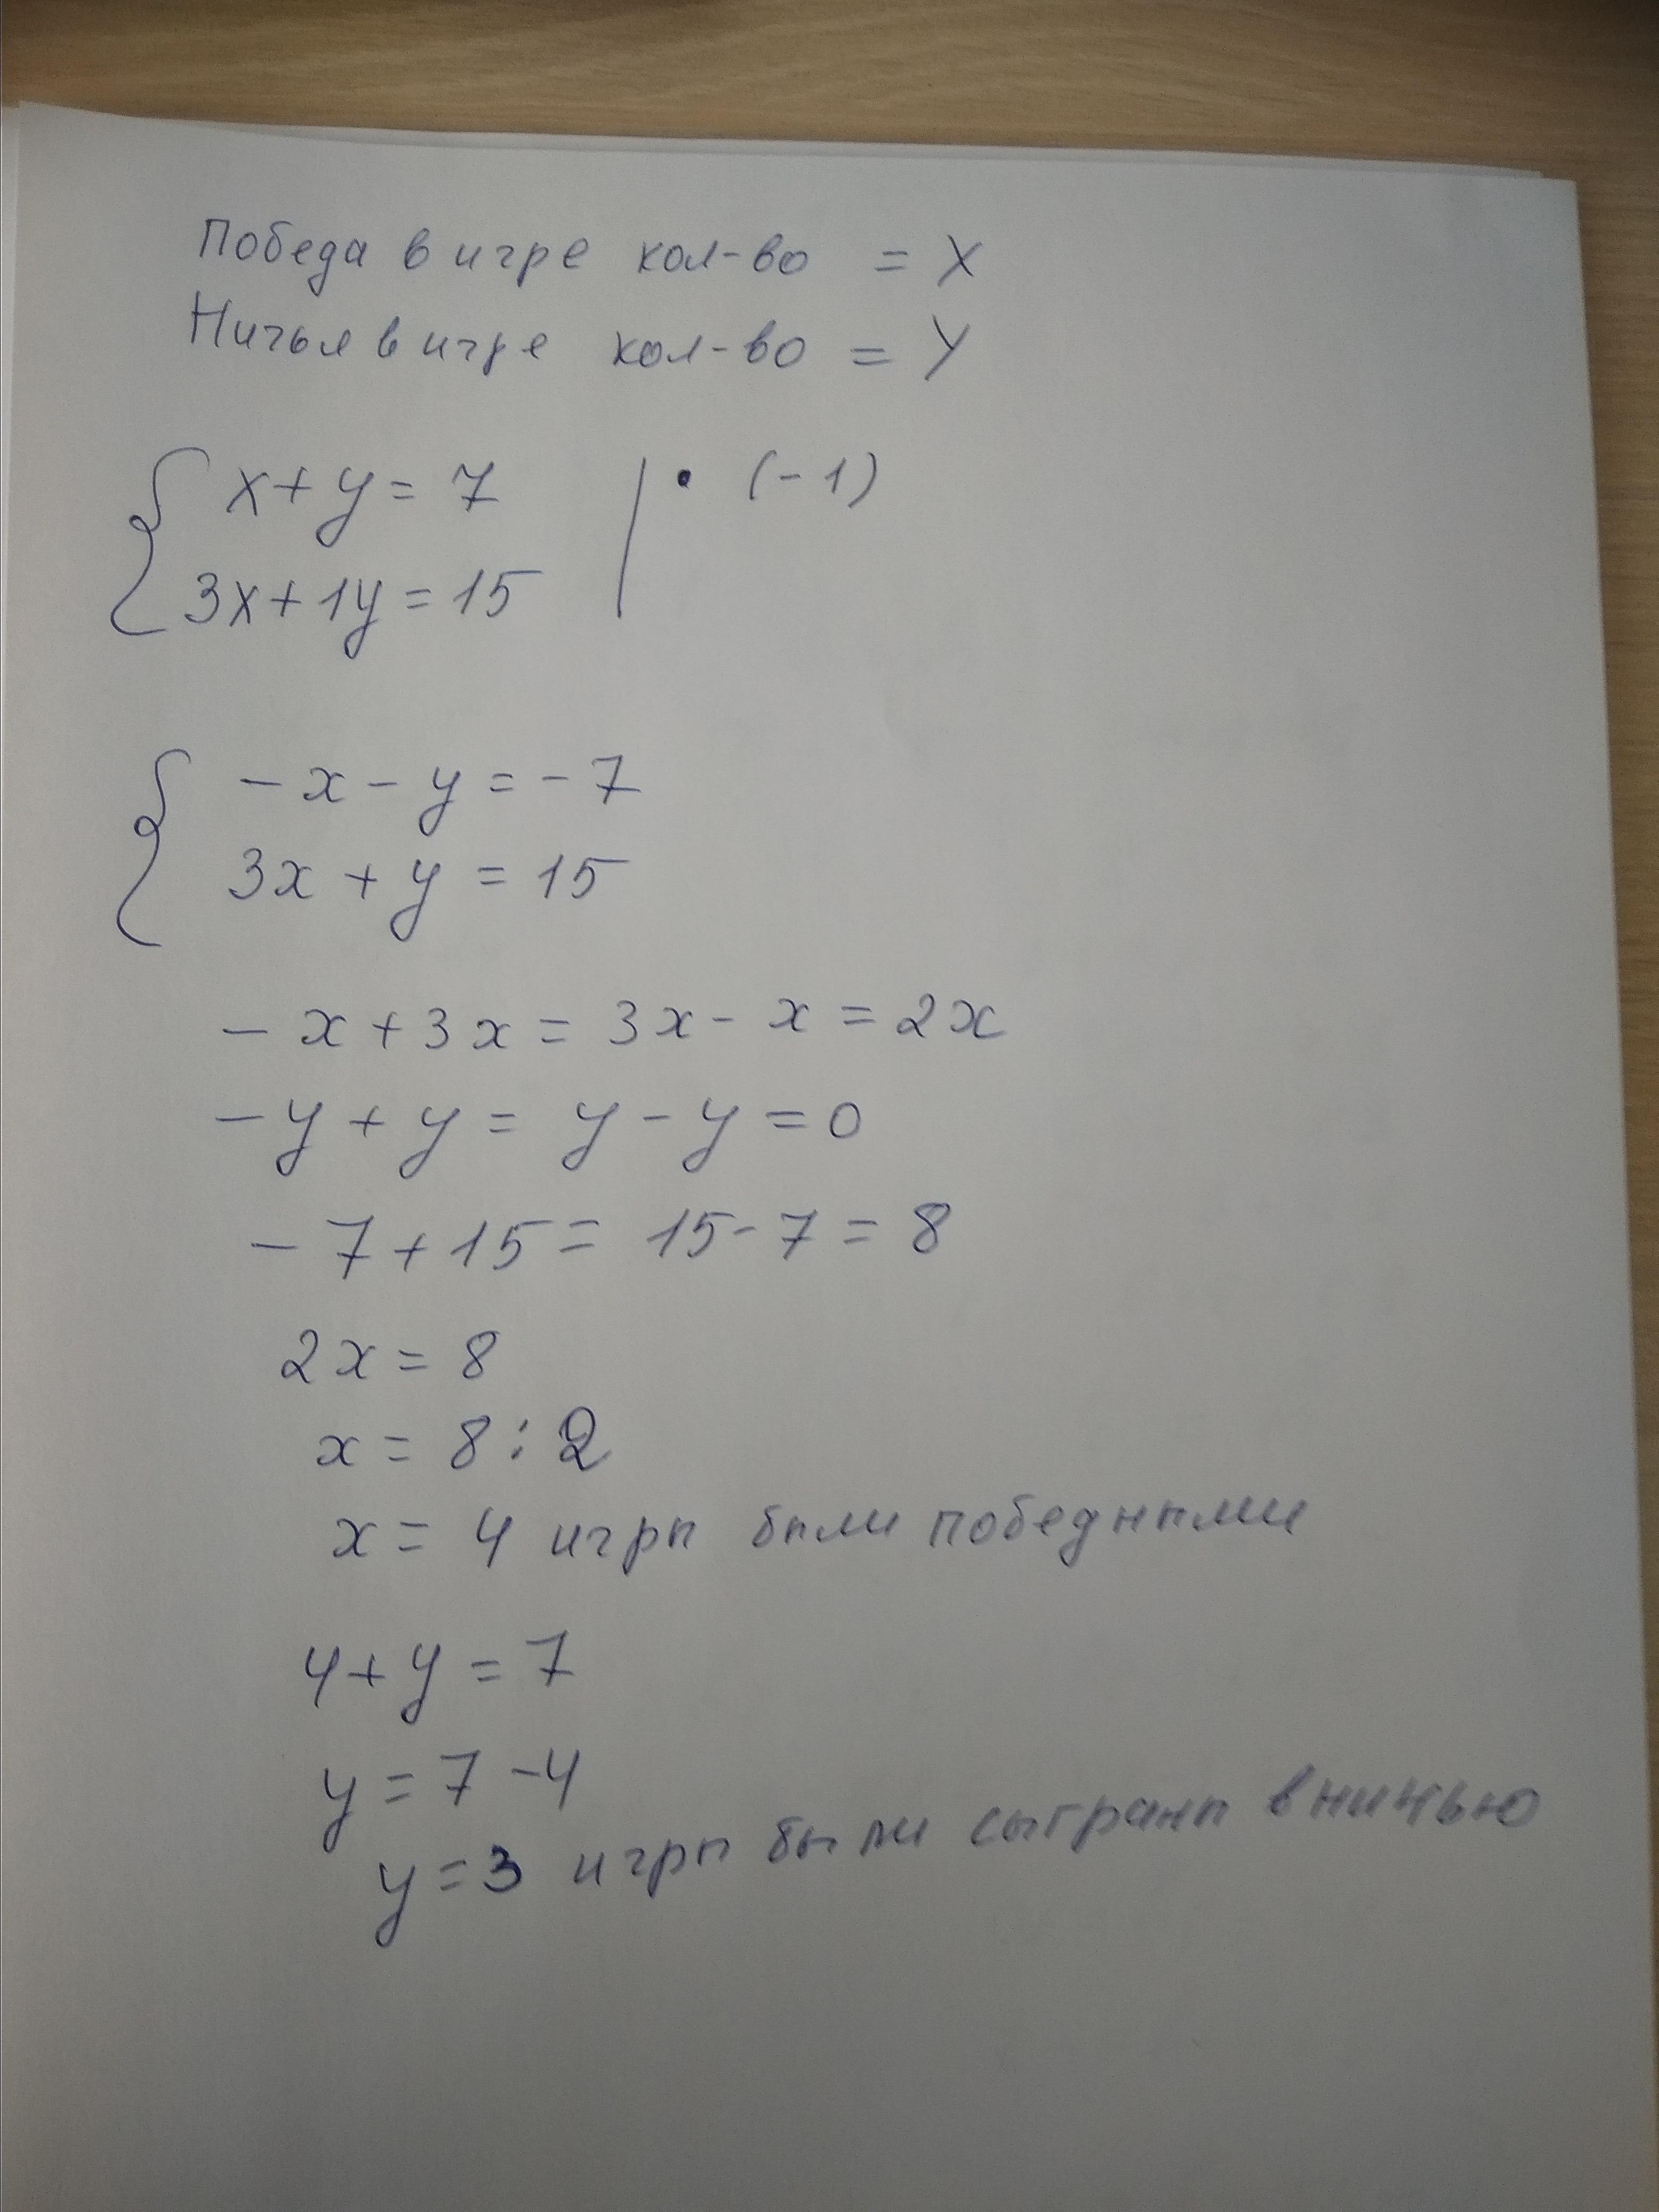 Победа в игре кол-во = X
Ничья в игре кол-во = Y
x + y = 7 | • (-1)
3x + 1y = 15
- x - y = - 7
3x + y = 15
- x + 3x = 3x - x = 2x
- y + y = y - y = 0
- 7 + 15 = 15 - 7 = 8
2x = 8
x = 8 : 2
x = 4 игры были победными
4 + y = 7
y = 7 - 4
y = 3 игры были сыграны вничью